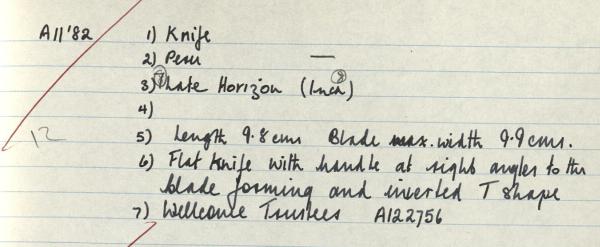 A11'82 1) Knife
2) Peru —
3) ? Late Horizon (Inca ?)
4)
12
5) Length 9.8 cms Blade max. width 9.9 cms.
6) Flat knife with handle at right angles to the
blade forming and inverted T shape
7) Wellcome Trustees A122756